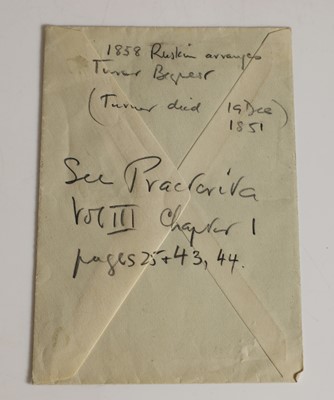 1858 Ruskin arranges
Turner Bequest
(Turner died 19 Dec
1851)
See Praeterita
Vol III Chapter 1
pages 25 + 43, 44.